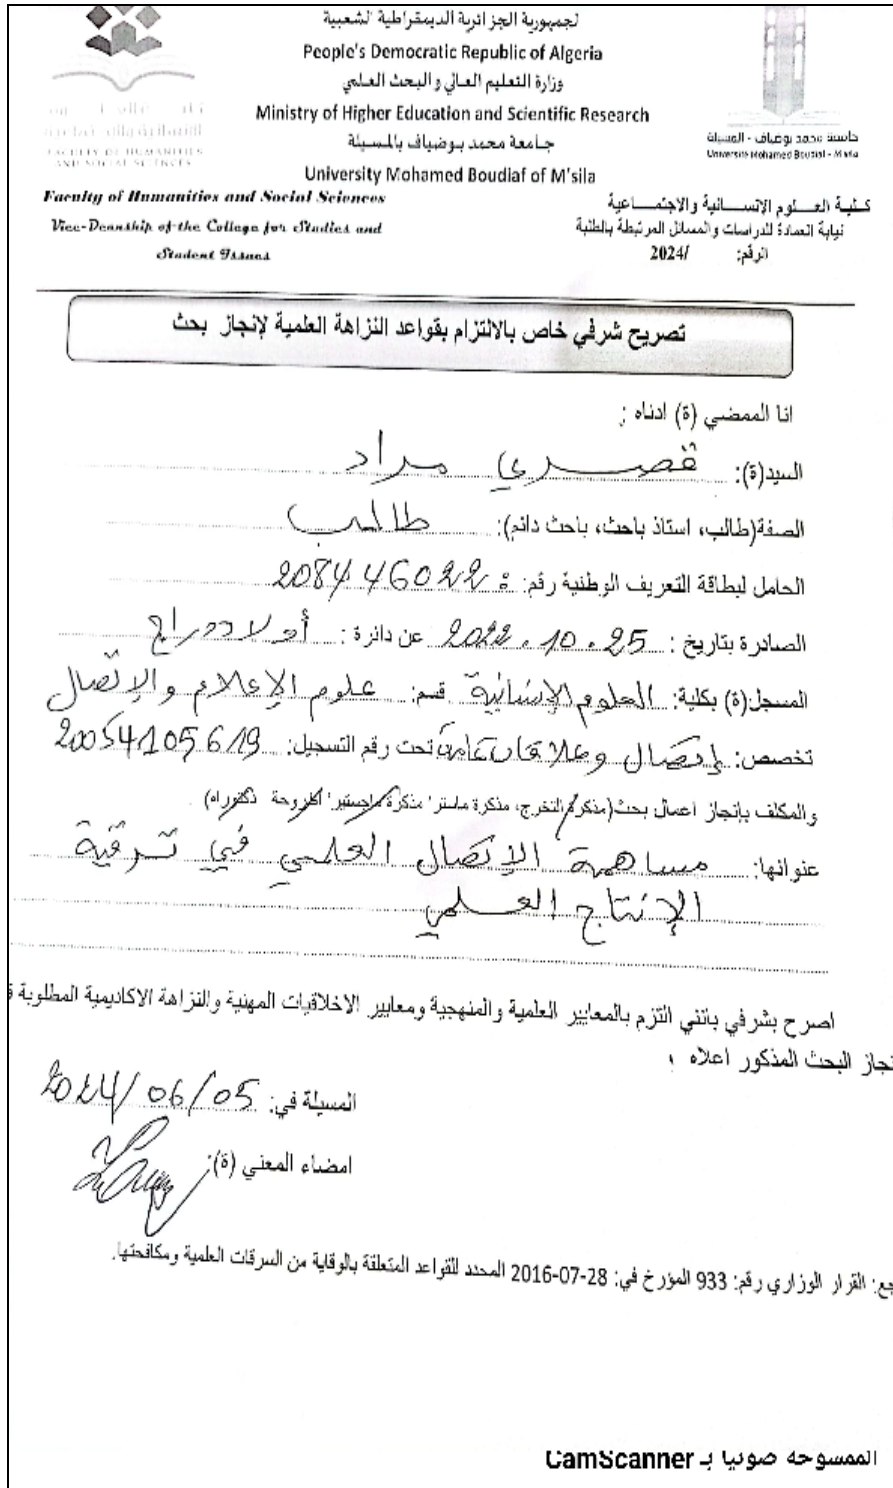 لجمهورية الجزائرية الديمقراطية الشعبية
People's Democratic Republic of Algeria
وزارة التعليم العالي والبحث العلمي
Ministry of Higher Education and Scientific Research
جامعة محمد بوضياف بالمسيلة
University Mohamed Boudiaf of M'sila
FACULTY OF HUMANITIES
AND SOCIAL SCIENCES
جامعة محمد بوضياف - المسيلة
Université Mohamed Boudiaf - M'sila
Faculty of Humanities and Social Sciences
Vice-Deanship of the College for Studies and
Student Issues
كلية العلوم الإنسانية والاجتماعية
نيابة العمادة للدراسات والمسائل المرتبطة بالطلبة
الرقم: /2024
تصريح شرفي خاص بالالتزام بقواعد النزاهة العلمية لإنجاز بحث
انا الممضي (ة) ادناه :
السيد(ة): قصري مراد
الصفة(طالب، استاذ باحث، باحث دائم): طالب
الحامل لبطاقة التعريف الوطنية رقم: 208446022
الصادرة بتاريخ : 2022.10.25 عن دائرة : أولاد دراج
المسجل(ة) بكلية: العلوم الإنسانية قسم: علوم الإعلام والإتصال
تخصص: إتصال وعلاقات عامة تحت رقم التسجيل: 20054105619
والمكلف بإنجاز اعمال بحث(مذكرة التخرج، مذكرة ماستر، مذكرة ماجستير، اطروحة دكتوراه)
عنوانها: مساهمة الإتصال العلمي في ترقية
الإنتاج العلمي
اصرح بشرفي بانني التزم بالمعايير العلمية والمنهجية ومعايير الاخلاقيات المهنية والنزاهة الاكاديمية المطلوبة
نجاز البحث المذكور اعلاه .
المسيلة في: 2024/06/05
امضاء المعني (ة):
جع: القرار الوزاري رقم: 933 المؤرخ في: 28-07-2016 المحدد للقواعد المتعلقة بالوقاية من السرقات العلمية ومكافحتها.
الممسوحة ضوئيا بـ CamScanner